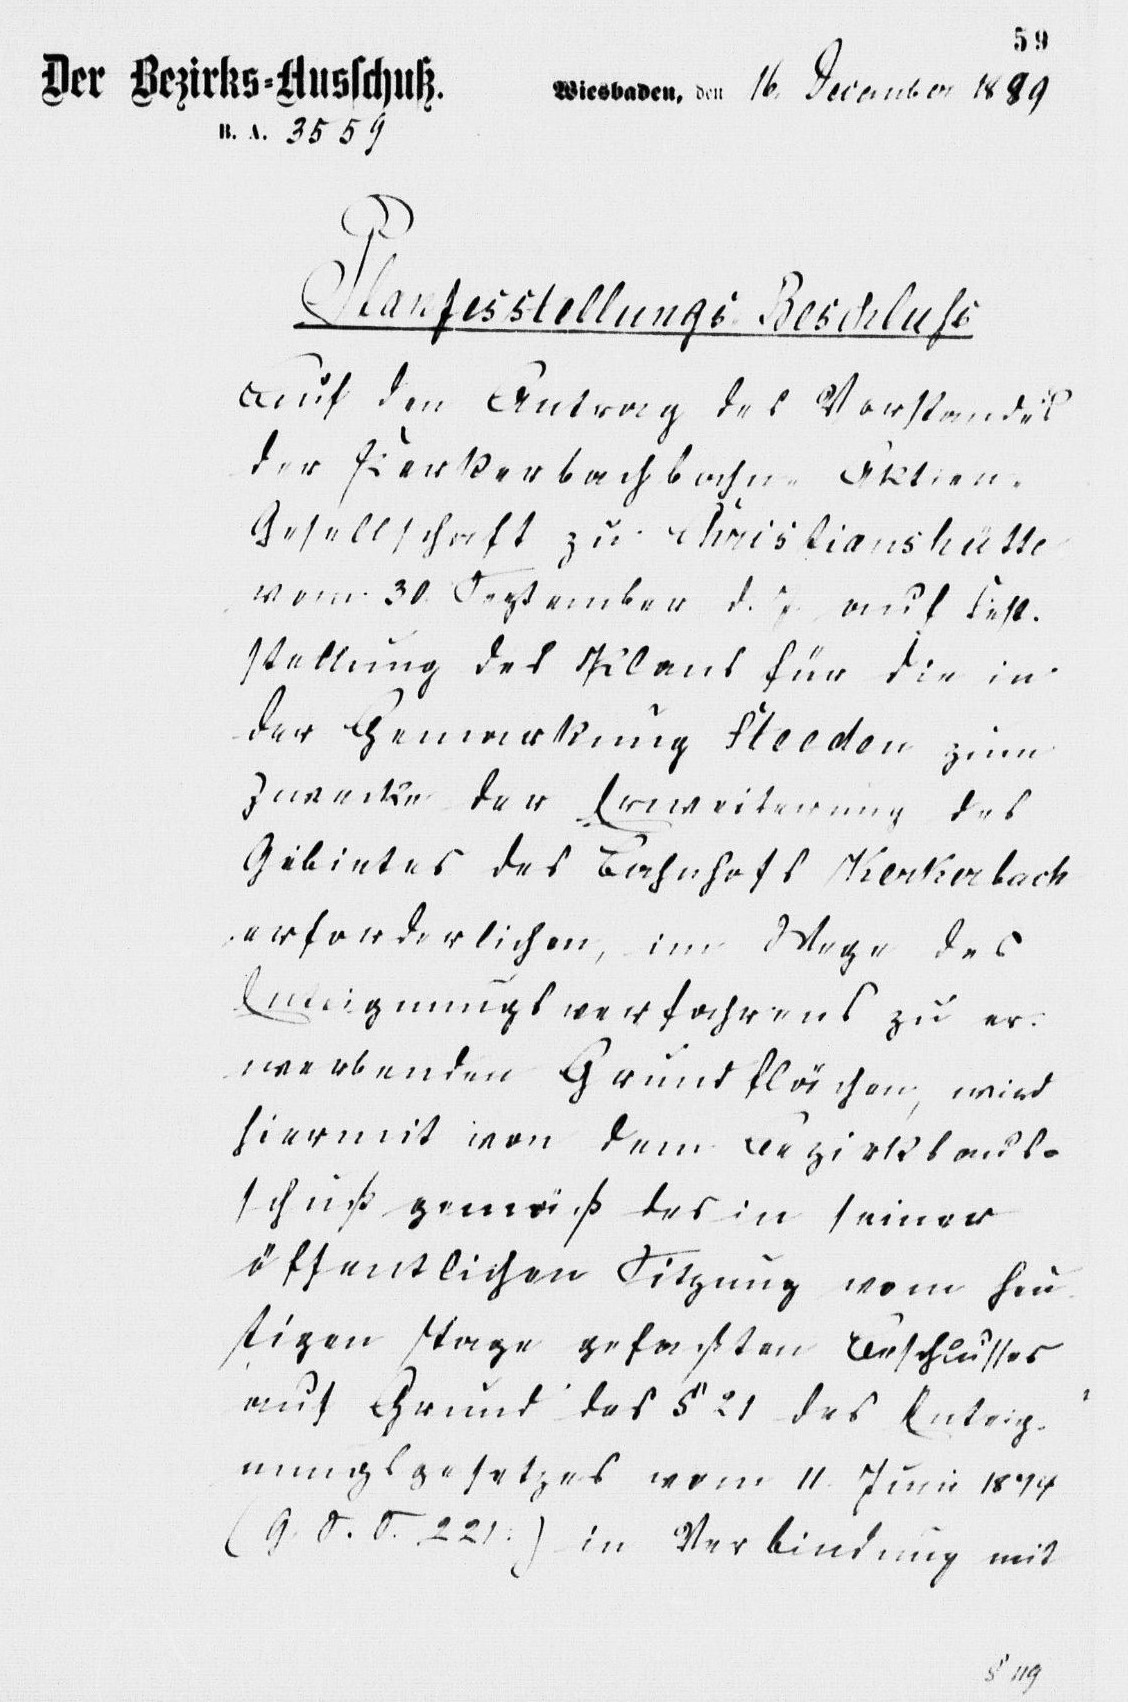 59
Der Bezirks-Ausschuß.
Wiesbaden, den 16. December 1889
B. A. 3559
Planfesstellungs-Beschluss
Auf den Antrag des Vorstandes
der Kerkerbachbahn-Aktien-
Gesellschaft zu Christianshütte
vom 30. September d. J. auf Fest-
stellung des Plans für die in
der Gemarkung Steeden zum
Zwecke der Erweiterung des
Gebietes des Bahnhofs Kerkerbach
erforderlichen, im Wege des
Enteignungsverfahrens zu er-
werbenden Grundflächen, wird
hiermit von dem Bezirksaus-
schuß gemäß des in seiner
öffentlichen Sitzung vom heu-
tigen Tage gefaßten Beschlusses
auf Grund des § 21 des Enteig-
nungsgesetzes vom 11. Juni 1874
(G. S. S. 221.) in Verbindung mit
§ 119